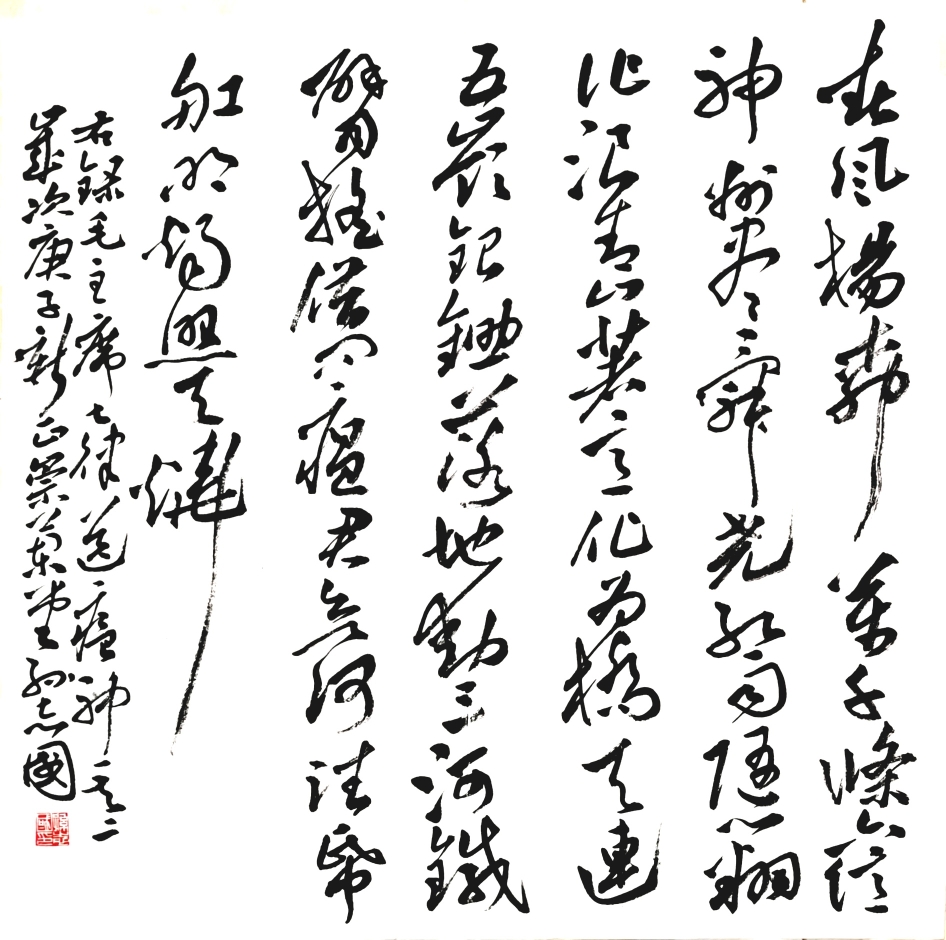 春風楊柳萬千條六億
神州尽舜尧紅雨随心翻
作浪青山著意化為橋天連
五嶺銀鋤落地動三河鐵
臂搖借问瘟君欲何往帋
船明燭照天燒
右錄毛主席七律送瘟神其二
歲次庚子新正崇蘭堂孫志國